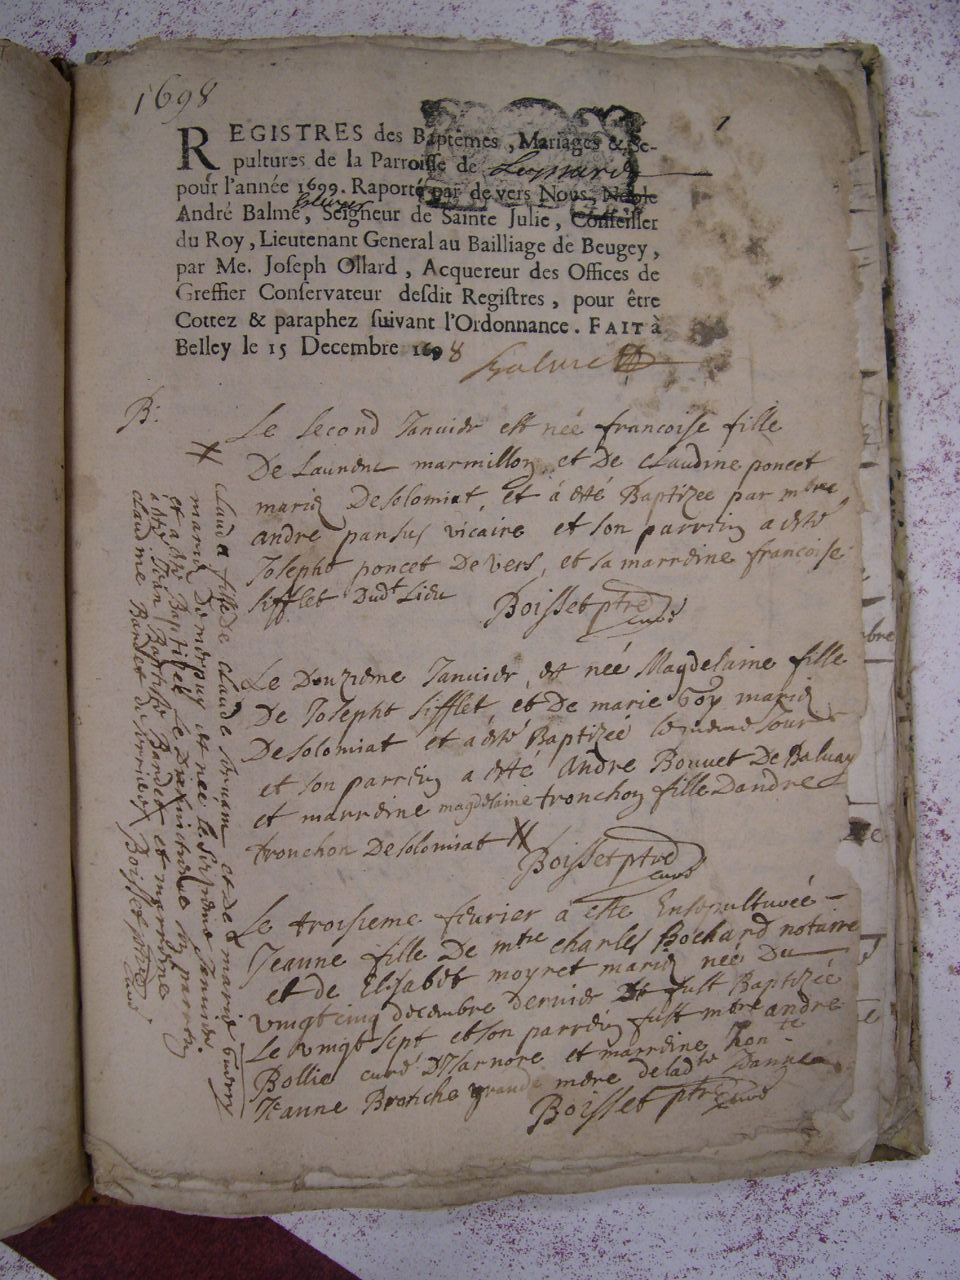 1698
1
REGISTRES des Baptêmes, Mariages & Se-
pultures de la Parroisse de
pour l'année 1699. Raporté par de vers Nous, Noble
André Balme, Seigneur de Sainte Julie, Conseiller
du Roy, Lieutenant General au Bailliage de Beugey,
par Me. Joseph Ollard, Acquereur des Offices de
Greffier Conservateur desdit Registres, pour être
Cottez & paraphez suivant l'Ordonnance. FAIT à
Belley le 15 Decembre 1698
Balme
B:
Le second Januier est née francoise fille
De Laurent marmillon et De Claudine poncet
mariez Desolomiat, et á esté Baptizée par mtre
andre pansus vicaire et son parrein a esté
Josepht poncet De vers, et sa marreine francoise
sifflet Dudt Lieu Boisset ptre curé
Le Douzieme Januier est née Magdelaine fille
De Josepht sifflet, et De marie Goy mariez
Desolomiat et a esté Baptizée le mesme jour
et son parrein a esté andre Bouuet De Baluay
et marreine magdelaine tronchon fille Dandre
tronchon Desolomiat X Boisset ptre curé
Le troisieme feurier a este Ensepulturée
Jeanne fille De mtre charles Bochard notaire
et de Elisabet moyret mariez née Du
vingt cinq decembre dernier Et fust Baptizée
Le vingt sept et son parrein fust mtre andre
Bollie curé D'Isarnore et marreine hon
Jeanne Bronche grande mere deladte Jeanne
Boisset ptre curé
X Claude fille De claude et De marie
mariez De et née le Januier
et a esté Baptizée Le son parrein
a esté Jean Baptiste Bandet et marreine
claudine Bandet Boisset ptre curé